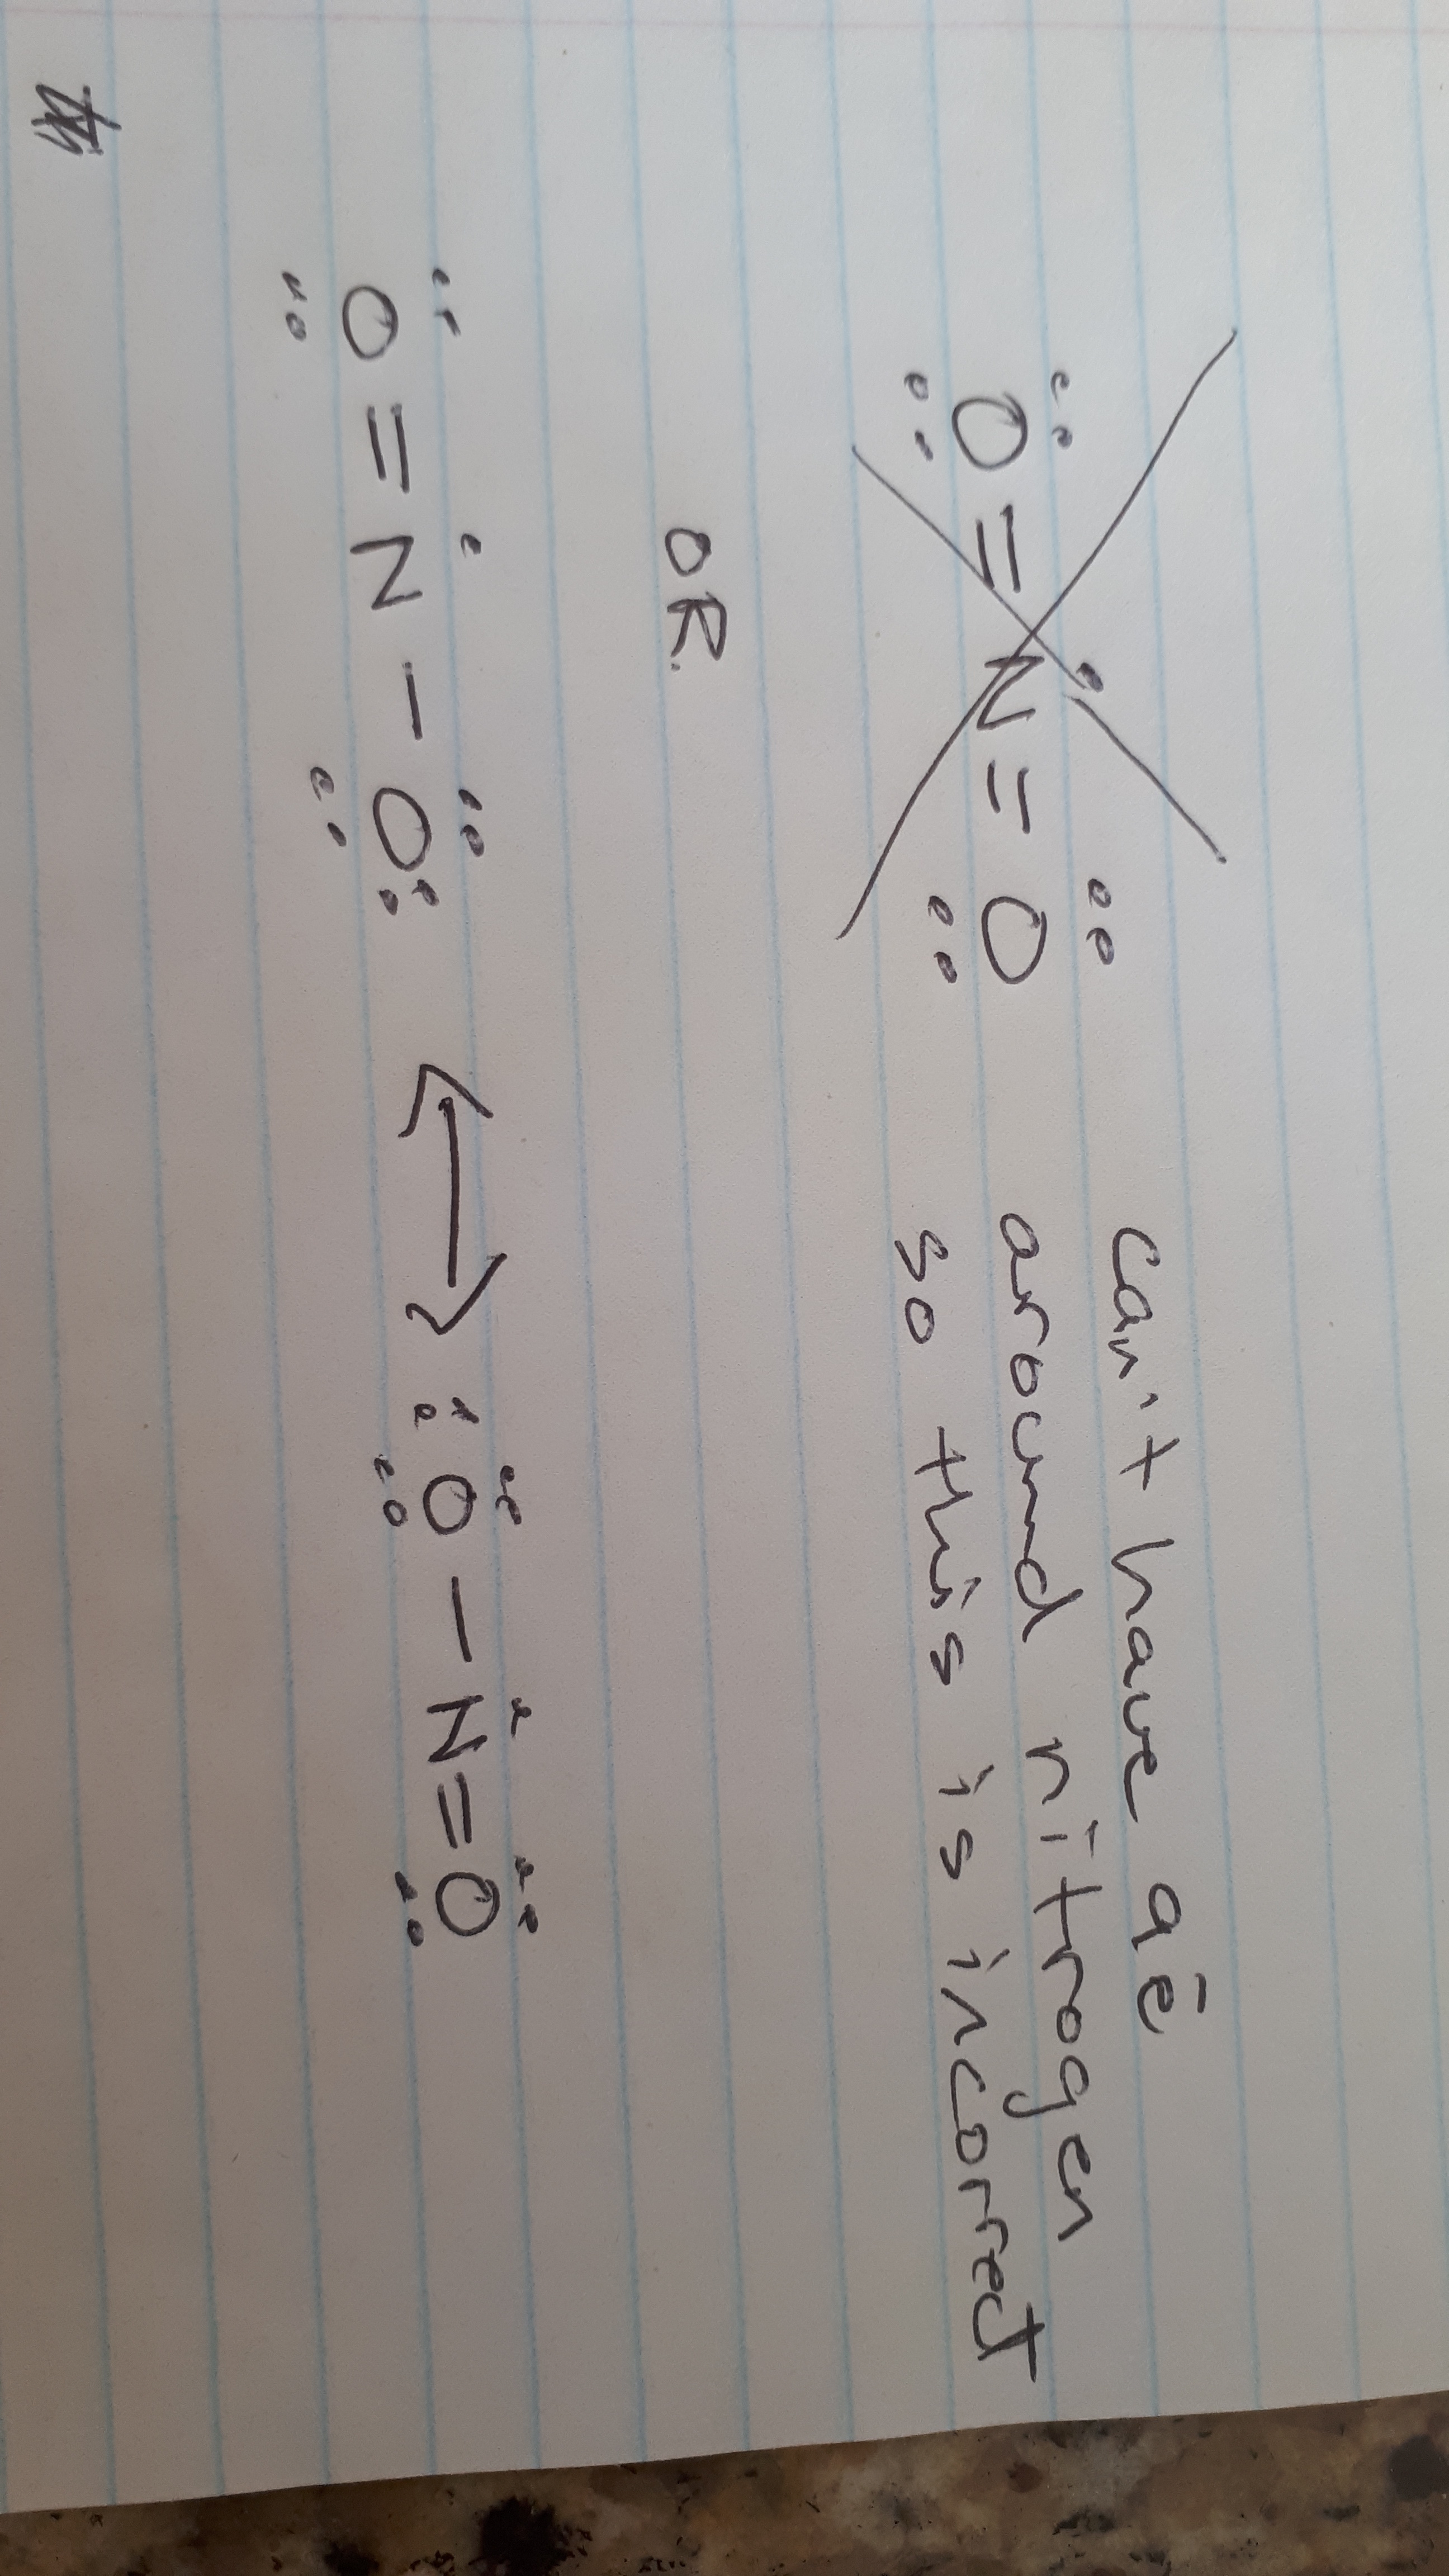 Ö = N = Ö can't have 9ē
around nitrogen
so this is incorrect
OR.
O = N - O: ↔ :O - N = O